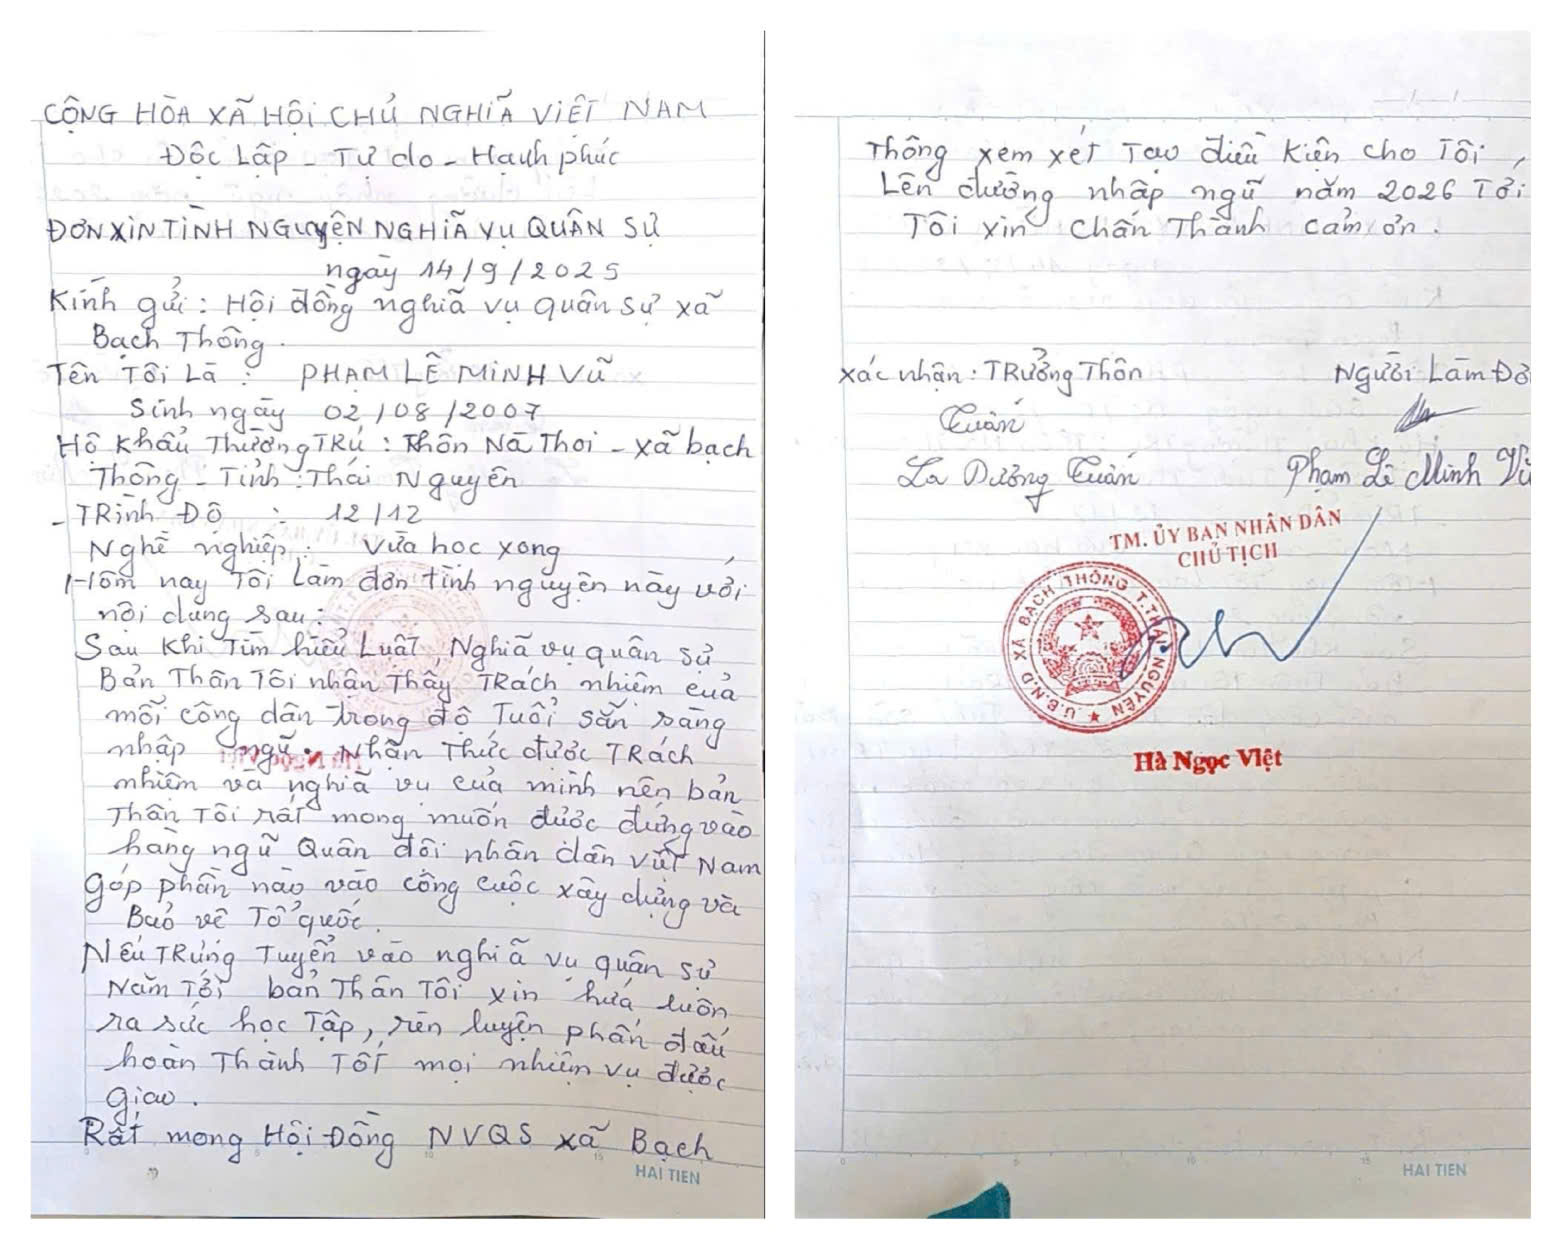 CỘNG HÒA XÃ HỘI CHỦ NGHĨA VIỆT NAM
Độc Lập - Tự do - Hạnh phúc
ĐƠN XIN TÌNH NGUYỆN NGHĨA VỤ QUÂN SỰ
ngày 14/9/2025
Kính gửi: Hội đồng nghĩa vụ quân sự xã
Bạch Thông.
Tên Tôi Là : PHẠM LÊ MINH VŨ
Sinh ngày 02/08/2007
Hộ Khẩu Thường TRú : Thôn Nà Thoi - xã bạch
Thông - Tỉnh : Thái Nguyên
- TRình Độ : 12/12
Nghề nghiệp : Vừa học xong
Hôm nay Tôi Làm đơn tình nguyện này với
nội dung sau :
Sau Khi Tìm hiểu Luật Nghĩa vụ quân sự
Bản Thân Tôi nhận Thấy TRách nhiệm của
mỗi công dân trong độ Tuổi sẵn sàng
nhập ngũ. Nhận Thức được TRách
nhiệm và nghĩa vụ của mình nên bản
Thân Tôi rất mong muốn được đứng vào
hàng ngũ Quân đội nhân dân Việt Nam
góp phần nào vào công cuộc xây dựng và
Bảo vệ Tổ quốc.
Nếu TRúng Tuyển vào nghĩa vụ quân sự
Năm Tới bản Thân Tôi xin hứa luôn
ra sức học Tập, rèn luyện phấn đấu
hoàn Thành Tốt mọi nhiệm vụ được
giao.
Rất mong Hội Đồng NVQS xã Bạch
HAI TIEN
Thông xem xét Tạo điều Kiện cho Tôi,
Lên đường nhập ngũ năm 2026 Tới
Tôi xin chân Thành cảm ơn.
Xác nhận : TRưởng Thôn
Người Làm Đơ
Tuấn
La Dương Tuấn
Phạm Lê Minh Vũ
TM. ỦY BAN NHÂN DÂN
CHỦ TỊCH
U.B.N.D XÃ BẠCH THÔNG T.THÁI NGUYÊN
Hà Ngọc Việt
HAI TIEN